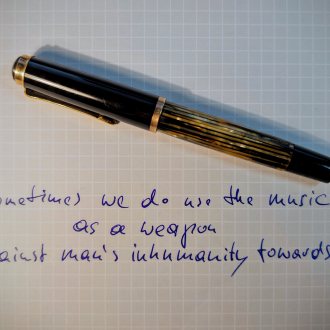 ometimes we do use the music
as a weapon
ainst man's inhumanity towards